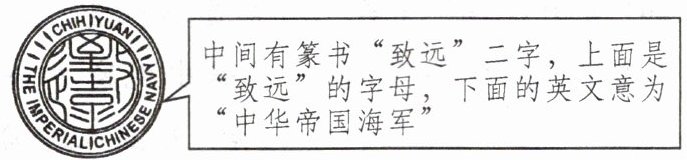 CHIH YUAN
THE IMPERIAL CHINESE NAVY
致远
中间有篆书“致远”二字，上面是
“致远”的字母，下面的英文意为
“中华帝国海军”